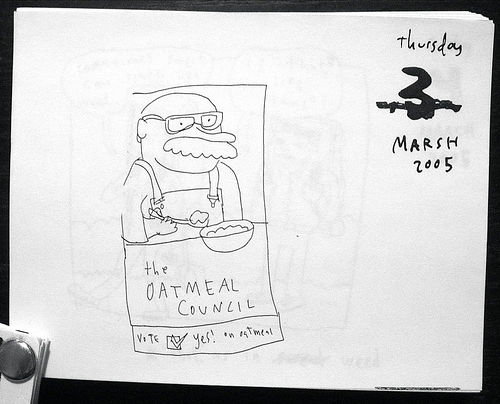 Thursday
3
MARSH
2005
the
OATMEAL
COUNCIL
VOTE yes! on oatmeal